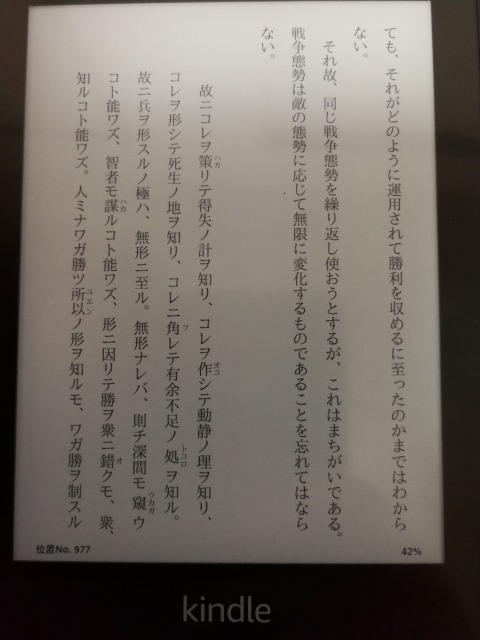 ても、それがどのように運用されて勝利を収めるに至ったのかまではわから
ない。
それ故、同じ戦争態勢を繰り返し使おうとするが、これはまちがいである。
戦争態勢は敵の態勢に応じて無限に変化するものであることを忘れてはなら
ない。
故ニコレヲ策リテ得失ノ計ヲ知リ、コレヲ作シテ動静ノ理ヲ知リ、
ハカ
オコ
コレヲ形シテ死生ノ地ヲ知リ、コレニ角レテ有余不足ノ処ヲ知ル。
フ
トコロ
故ニ兵ヲ形スルノ極ハ、無形ニ至ル。無形ナレバ、則チ深間モ窺ウ
ウカガ
コト能ワズ、智者モ謀ルコト能ワズ、形ニ因リテ勝ヲ衆ニ錯クモ、衆、
ハカ
オ
知ルコト能ワズ。人ミナワガ勝ツ所以ノ形ヲ知ルモ、ワガ勝ヲ制スル
ユエン
位置No. 977
42%
kindle